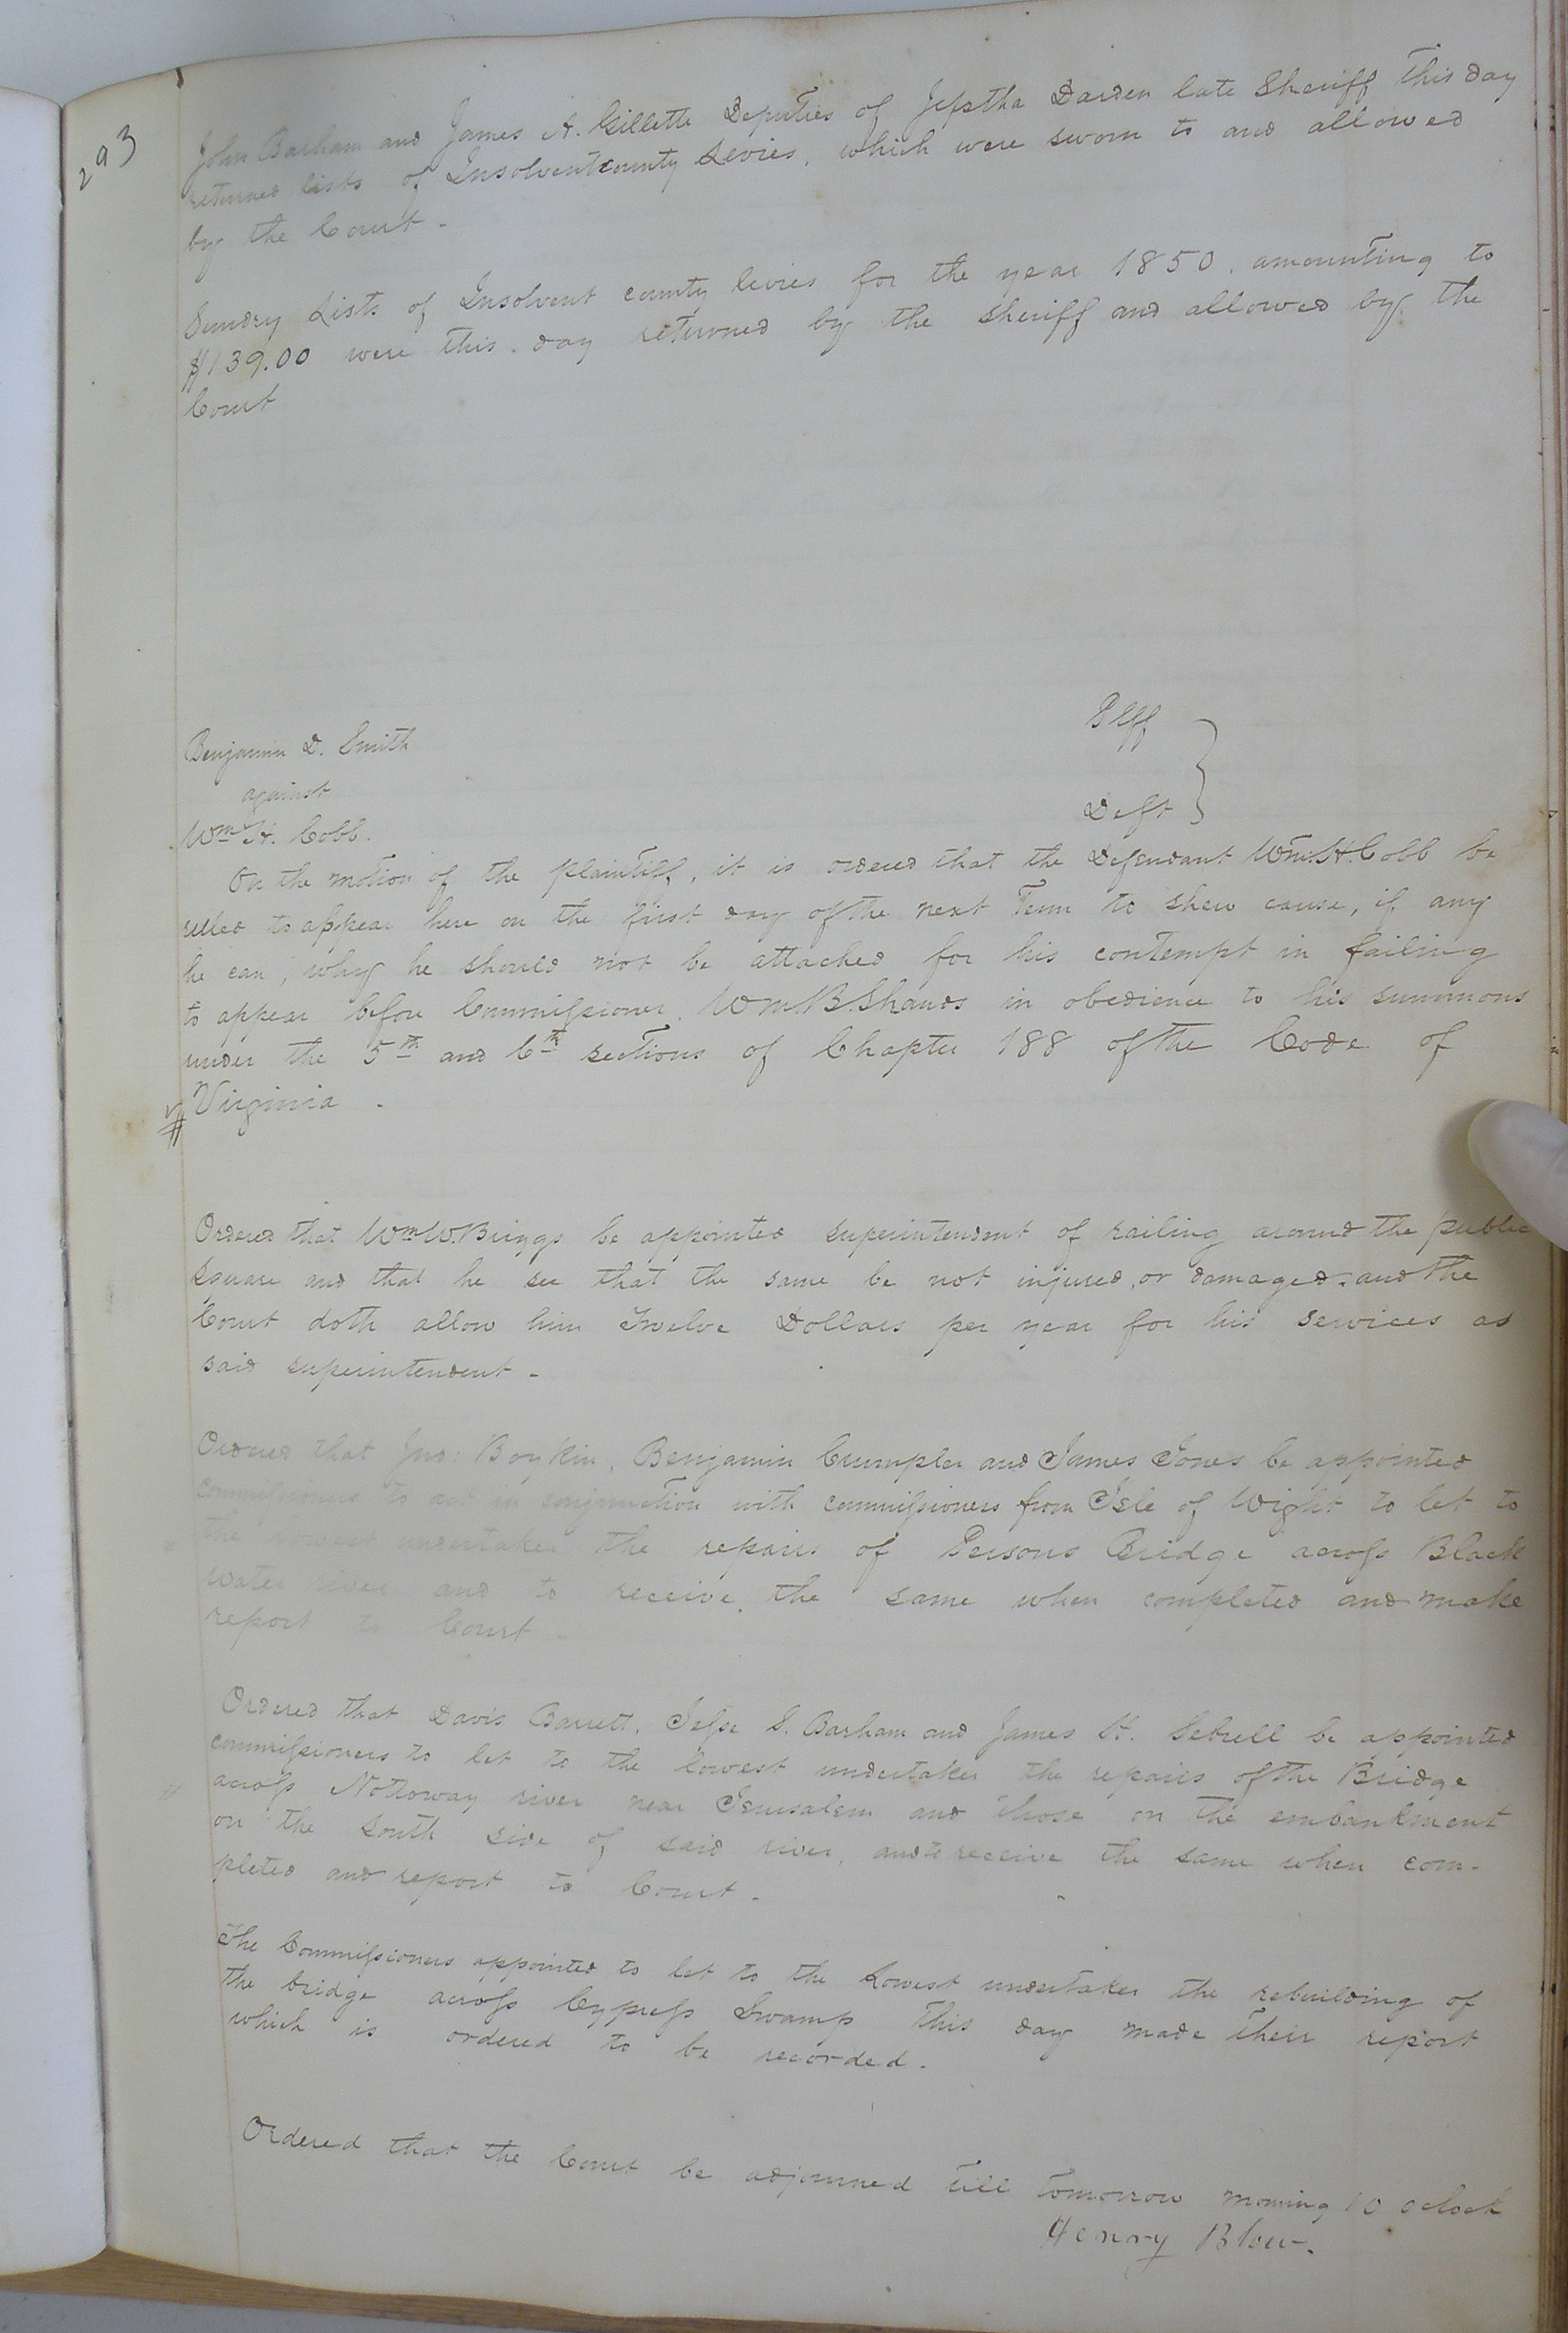 293
John Barham and James A. Gillette Deputies of Jeptha Darden late Sheriff this day
returned lists of Insolvent county Levies, which were sworn to and allowed
by the Court -
Sundry Lists of Insolvent county levies for the year 1850, amounting to
$139.00 were this day returned by the sheriff and allowed by the
Court
Benjamin D. Smith Plff
against
Wm. H. Cobb. Deft
On the motion of the plaintiff, it is ordered that the Defendant Wm. H. Cobb be
ruled to appear here on the first day of the next Term to shew cause, if any
he can, why he should not be attached for his contempt in failing
to appear before Commissioner Wm. B. Shands in obedience to his summons
under the 5th and 6th sections of Chapter 188 of the Code of
Virginia -
Ordered that Wm W. Briggs be appointed superintendent of railing around the public
square and that he see that the same be not injured, or damaged: and the
Court doth allow him Twelve Dollars per year for his services as
said superintendent -
Ordered that Jno: Boykin, Benjamin Crumpler and James Jones be appointed
commissioners to act in conjunction with commissioners from Isle of Wight to let to
the lowest undertaker the repairs of Persons Bridge across Black
water river and to receive the same when completed and make
report to Court -
Ordered that Davis Barrett, Jesse S. Barham and James H. Sebrell be appointed
commissioners to let to the lowest undertaker the repairs of the Bridge
across Nottoway river near Jerusalem and those on the embankment
on the south side of said river, and to receive the same when com-
pleted and report to Court -
The Commissioners appointed to let to the Lowest undertaker the rebuilding of
the bridge across Cypress Swamp this day made their report
which is ordered to be recorded -
Ordered that the Court be adjourned till tomorrow morning 10 oclock
Henry Blow.